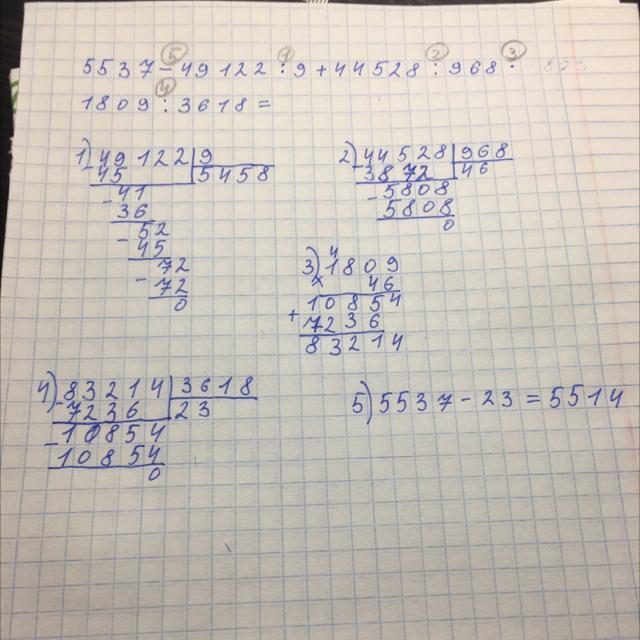 5537 - 49122 : 9 + 44528 : 968 ·
1809 : 3618 =
5 1 2 3
4
1) 49122 | 9
- 45 | 5458
- 41
36
- 52
45
- 72
72
0
2) 44528 | 968
- 3872 | 46
- 5808
5808
0
3) 4
1809
× 46
10854
+ 7236
83214
4) 83214 | 3618
- 7236 | 23
- 10854
10854
0
5) 5537 - 23 = 5514